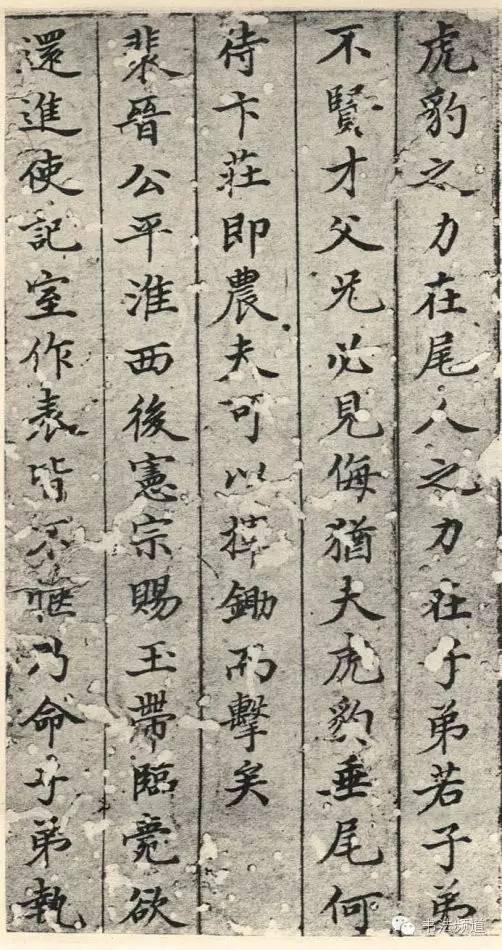 虎豹之力在尾人之力在子弟若子弟
不賢才父兄必見侮猶夫虎豹垂尾何
待卞莊即農夫可以揮鋤而擊矣
裴晉公平淮西後憲宗賜玉帶臨薨欲
還進使記室作表皆不愜乃命子弟執
书法频道